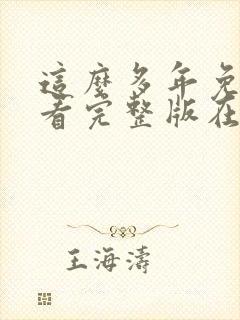 這麼多年免
看完整版在
王海濤